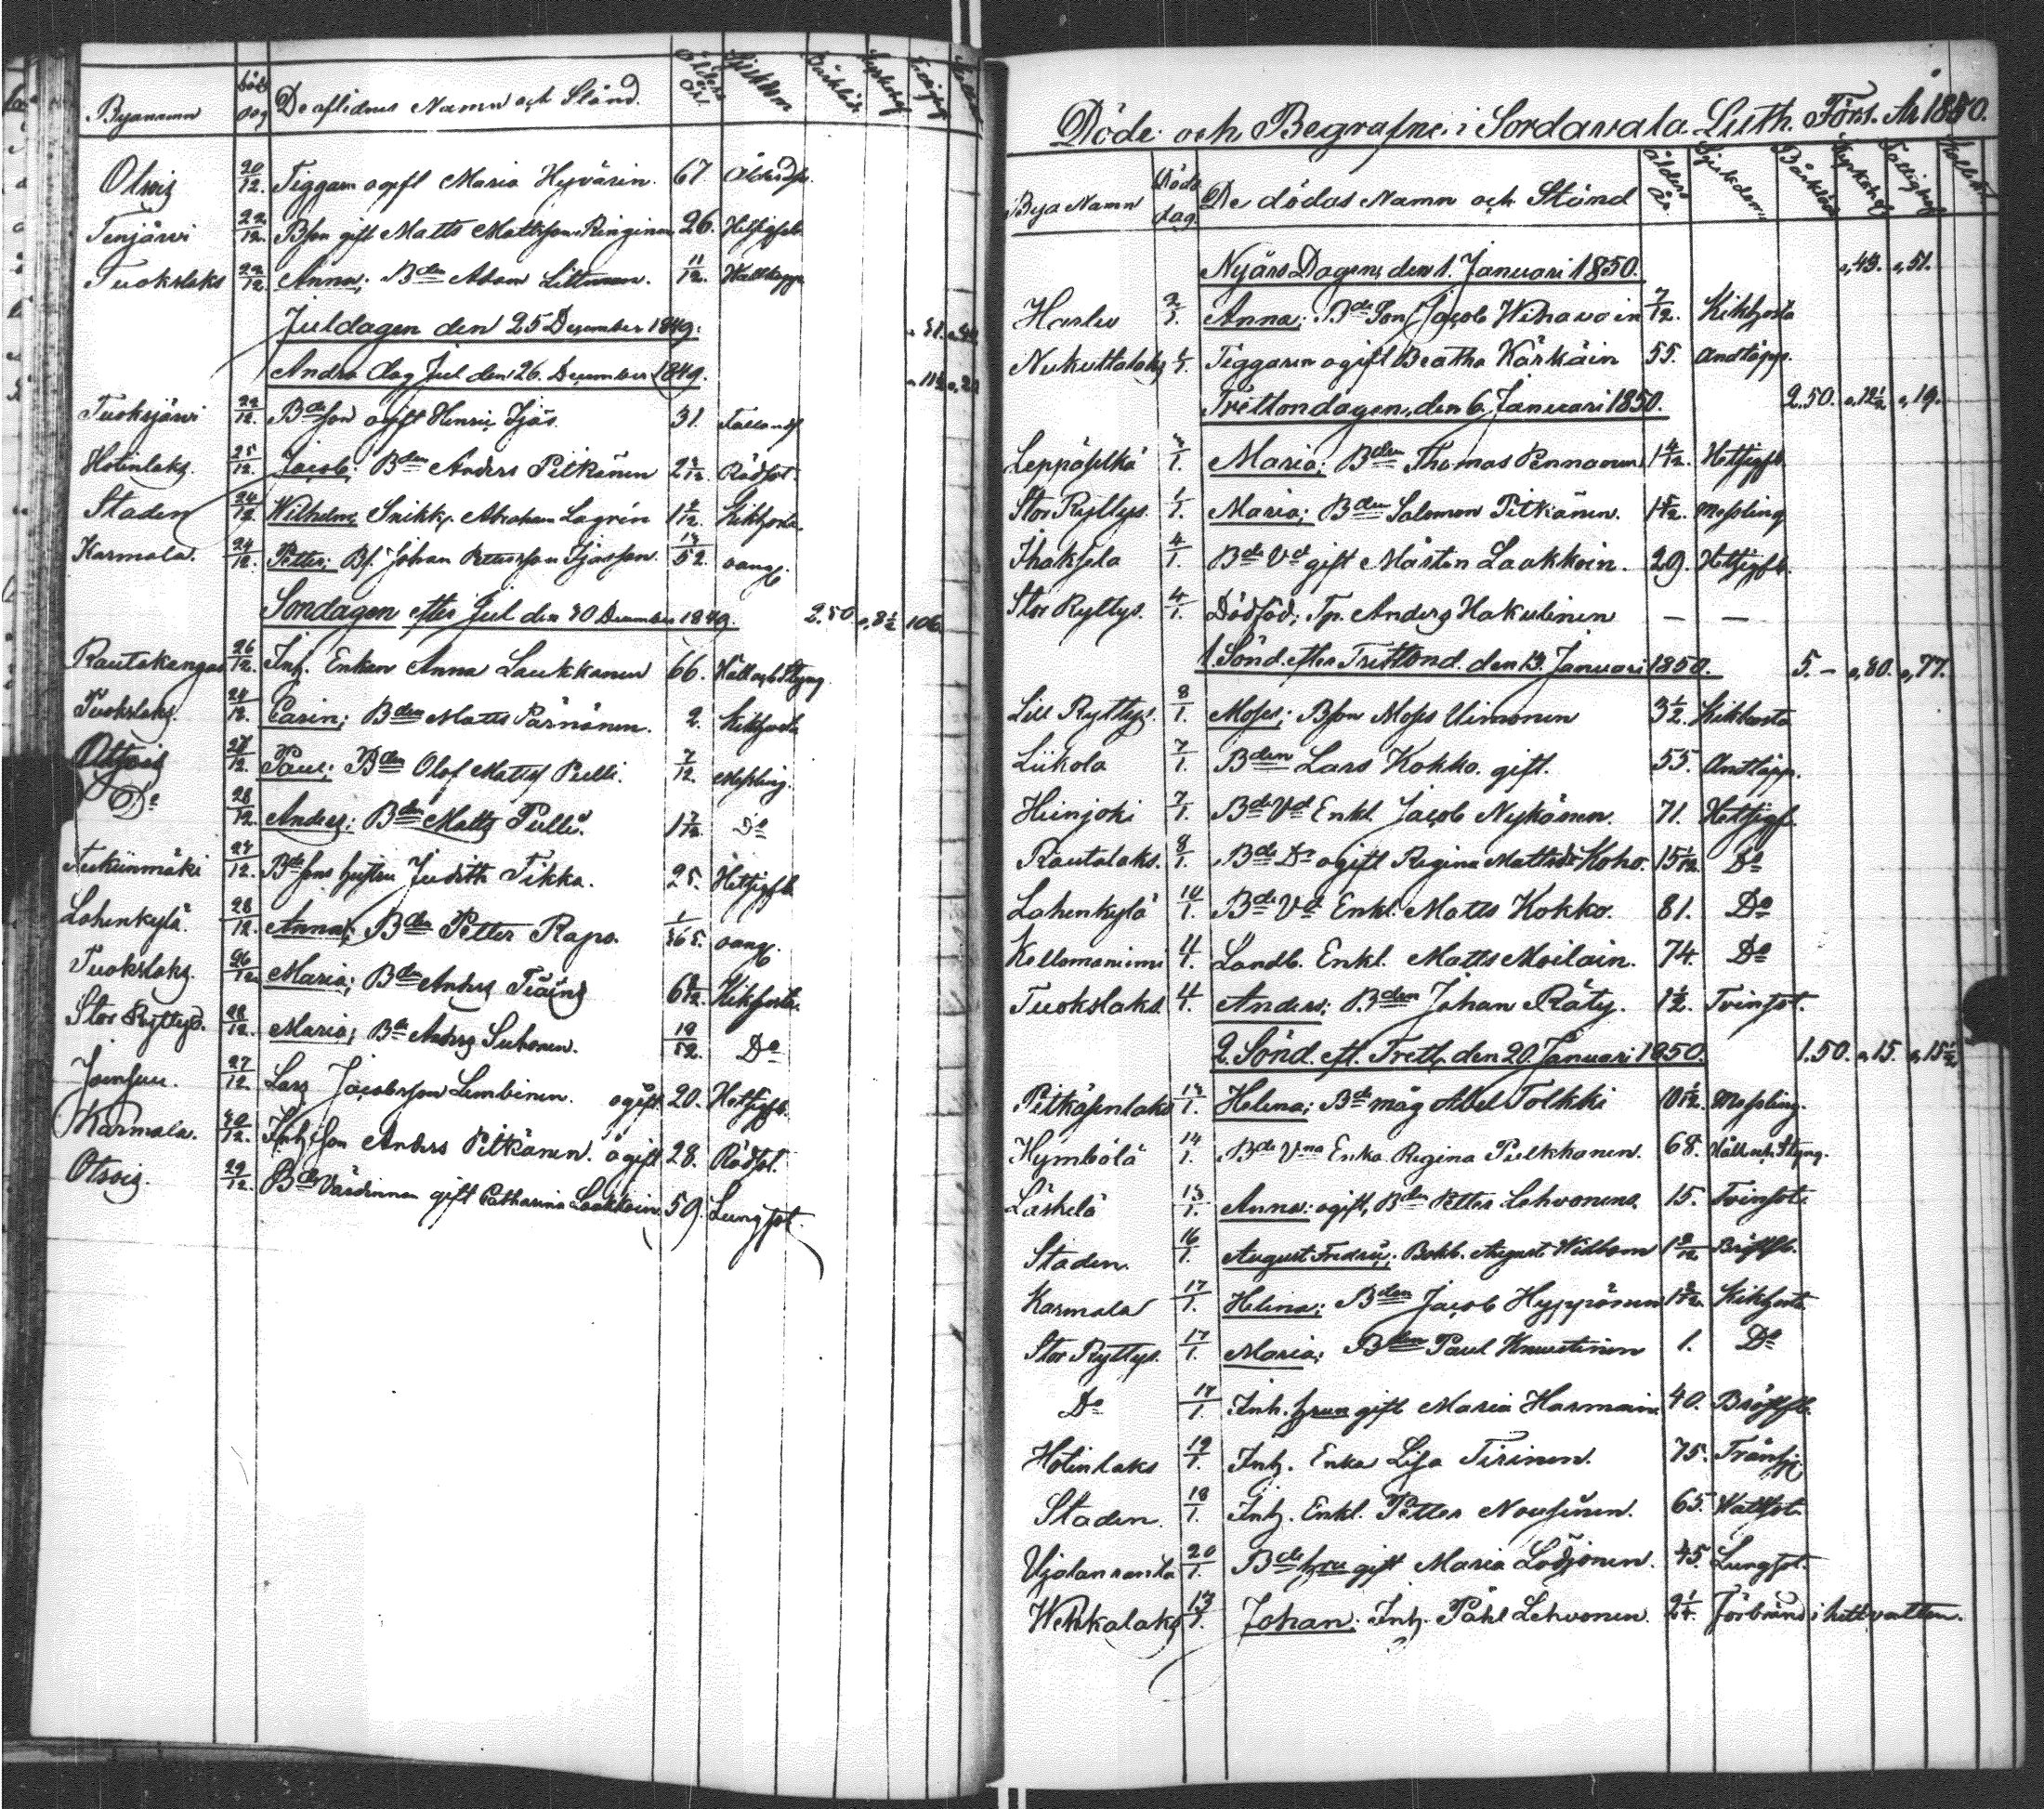 Byanamn Döds dag De aflidnes Namn och Stånd. Ålder År. Sjukdom
Otsois 20/12. Tiggaren ogift Maria Hyvärin. 67. Ålderdr.
Tenjärvi 22/12. Bson gift Matts Mattsson Ringinen 26. Hetsigfeb.
Tuokslaks 22/12. Anna; Bden Adam Littunen. 11/12. Wattkopp.
Juldagen den 25 December 1849.
Andra dag Jul den 26. December 1849.
Tuoksjärvi 22/12. Bdeson ogift Henric Ijäs. 31.
Hotinlaks. 25/12. Jacob; Bden Anders Pitkänen Rödsot.
Staden 24/12. Wilhelm; Snikk. Abraham Lagrén Kikhosta
Karmala. 24/12. Petter; Bs. Johan Pettersson Ijässon. 13/52. oang.
Söndagen efter Jul den 30 December 1849. 2.50 8½ 106.
Rautakangas 26/12. Inh. Enkan Anna Laukkanen 66. Håll och Styng
Tuokslaks. 24/12. Carin; Bden Matts Pärnänen. 2. Kikhosta
Otsois 28/12. Paul; Bden Olof Mattss Pulli. 7/12. Messling.
Do 28/12. Anders; Bden Matts Pulli. 1 7/12. Do
27/12. Bdesons hustru Judith Tikka. 25. Hetsigfeb.
Lahenkylä. 28/12. Anna; Bden Petter Rapo. 1/365. oang.
Tuokslaks. 26/12. Maria; Bden Anders Kikhosta.
Stor Ryttys. 28/12. Maria; Bde Anders Suhonen. 19/52. Do
Joensuu. 27/12. Lars Jacobsson Lembinen. ogift. 20. Hetsigfeb.
Karmala. 30/12. Inh. son Anders Pitkänen. ogift 28. Rödsot.
Otsois. 29/12. Bde Värdinnan gift Catharina Laakkoin. 59. Lungsot.
Döde och Begrafne i Sordavala Luth. Förs. År 1850.
Bya Namn Döds dag. De dödas Namn och Stånd Ålders År. Sjukdom Bårkläde Kyrkohof Fattighof Kollekt
Nyårs Dagen, den 1. Januari 1850. 43. 51.
Harlu 2/1. Anna; Bde Son Jacob Wihavain 7/12. Kikhosta
Nukuttalaks 1/1. Tiggaren ogift Beatha Kärkäin 55. Andtäpp.
Trettondagen, den 6. Januari 1850. 2.50. 12½ 19.
Leppäselkä 3/1. Maria; Bden Thomas Pennanen 1 4/12. Hetsigfb.
Stor Ryttys. 1/1. Maria; Bden Salomon Pitkänen. Messling
Ihaksela 4/1. Bde Vd gift Mårten Laakkoin. 29. Hetsigfb.
Stor Ryttys. 4/1. Dödföd; Tp. Anders Hakulinen — —
1 Sönd. efter Trettond. den 13. Januari 1850. 5.— 80. 77.
Lill Ryttys. 8/1. Moses; Bson Moses Uimonen 3½. Kikhosta
Liikola 7/1. Bden Lars Kokko. gift. 55. Andtäpp.
Heinjoki 7/1. Bde Vd Enkl. Jacob Nykänen. 71. Hetsigf.
Rautalaks. 8/1. Bde Dr ogift Regina Mattsdr Koho. Do
Lahenkylä 10/1. Bde Vd Enkl. Matts Kokko. 81. Do
Landb. Enkl. Matts Moilain. 74. Do
Tuokslaks. Anders; Bden Johan Räty. 1½. Tvinsot.
2. Sönd. eft. Trett. den 20. Januari 1850. 1.50. 15. 15½
Pitkäsenlaks 13/1. Helena; Bde måg Abel Tolkki Messling.
Hymbölä 14/1. Bde Vna Enka Regina Pulkkanen. 68. Håll och Styng.
Läskelä 13/1. Anna; ogift, Bden Petter Lehvonens. 15. Tvinsot.
Staden. 16/1. August Fredric; Bokb. August Widbom Bröstfb.
Karmala 17/1. Helena; Bden Jacob Hyppönen Kikhosta
Stor Ryttys. 17/1. Maria; Bden Paul Knuutinen 1. Do
Do 17/1. Inh. hrun gift Maria Harmain. 40. Bröstfb.
Hotinlaks 19/1. Inh. Enka Lisa Tirinen. 75. Trånsj.
Staden. 18/1. Inh. Enkl. Petter Nousiinen. 65. Wattsot.
Ujalanranta 20/1. Bde hru gift Maria Lodjonen. 45. Lungsot.
Wehkalaks 13/1. Johan; Inh. Påhl Lehvonen. 2¼. Förbränd i hett vatten.